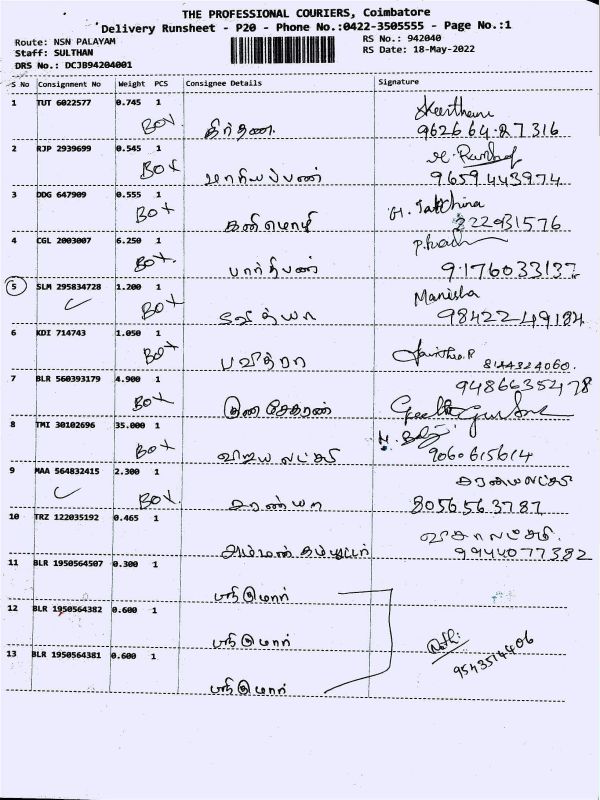 THE PROFESSIONAL COURIERS, Coimbatore
Delivery Runsheet - P20 - Phone No.:0422-3505555 - Page No.:1
Route: NSN PALAYAM RS No.: 942040
Staff: SULTHAN RS Date: 18-May-2022
DRS No.: DCJB94204001
S No Consignment No Weight PCS Consignee Details Signature
1 TUT 6022577 0.745 1
BOX கீர்தனா Keerthana
962664827316
2 RJP 2939699 0.545 1
BOX மாரியப்பன்
9659443974
3 DDG 647909 0.555 1
BOX கனிமொழி
4 CGL 2003007 6.250 1
BOX பார்திபன்
9176033137
5 SLM 295834728 1.200 1 Manisha
BOX வித்யா 9842249184
6 KDI 714743 1.050 1
BOX பவித்ரா Pavithra.P 8144324060.
7 BLR 560393179 4.900 1 9486635278
BOX குணசேகரன்
8 TMI 30102696 35.000 1
BOX விஜய லட்சுமி 9060615614
9 MAA 564832415 2.300 1
BOX சரண்யா 8056563787
10 TRZ 122035192 0.465 1 விசாலட்சுமி
அம்மன் 9944077382
11 BLR 1950564507 0.300 1
12 BLR 1950564382 0.600 1
13 BLR 1950564381 0.600 1
9543514406